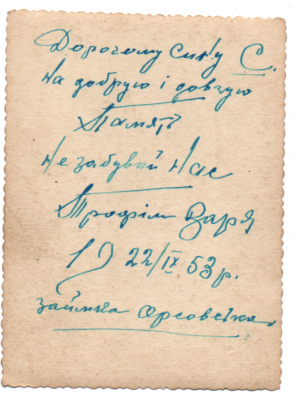 Дорогому сину С.
на добрую і довгую
Память
Незабувай Нас
Трофім Варя
19 22/IX 53 р.
займка